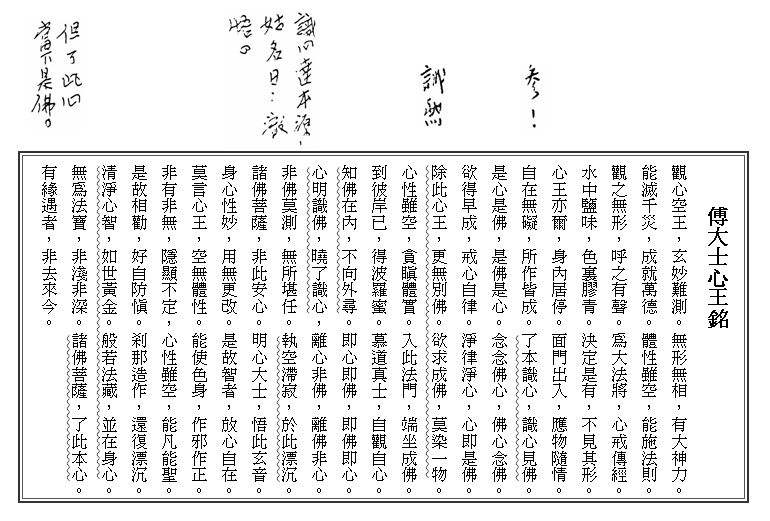 參！
誠然
識心達本源，
始名曰：徹
悟。
但了此心
當下是佛。
傅大士心王銘
觀心空王，玄妙難測。無形無相，有大神力。
能滅千災，成就萬德。體性雖空，能施法則。
觀之無形，呼之有聲。爲大法將，心戒傳經。
水中鹽味，色裏膠青。決定是有，不見其形。
心王亦爾，身內居停。面門出入，應物隨情。
自在無礙，所作皆成。了本識心，識心見佛。
是心是佛，是佛是心。念念佛心，佛心念佛。
欲得早成，戒心自律。淨律淨心，心即是佛。
除此心王，更無別佛。欲求成佛，莫染一物。
心性雖空，貪瞋體實。入此法門，端坐成佛。
到彼岸已，得波羅蜜。慕道真士，自觀自心。
知佛在內，不向外尋。即心即佛，即佛即心。
心明識佛，曉了識心，離心非佛，離佛非心。
非佛莫測，無所堪任。執空滯寂，於此漂沉。
諸佛菩薩，非此安心。明心大士，悟此玄音。
身心性妙，用無更改。是故智者，放心自在。
莫言心王，空無體性。能使色身，作邪作正。
非有非無，隱顯不定。心性雖空，能凡能聖。
是故相勸，好自防愼。剎那造作，還復漂沉。
清淨心智，如世黃金。般若法藏，並在身心。
無爲法寶，非淺非深。諸佛菩薩，了此本心。
有緣遇者，非去來今。